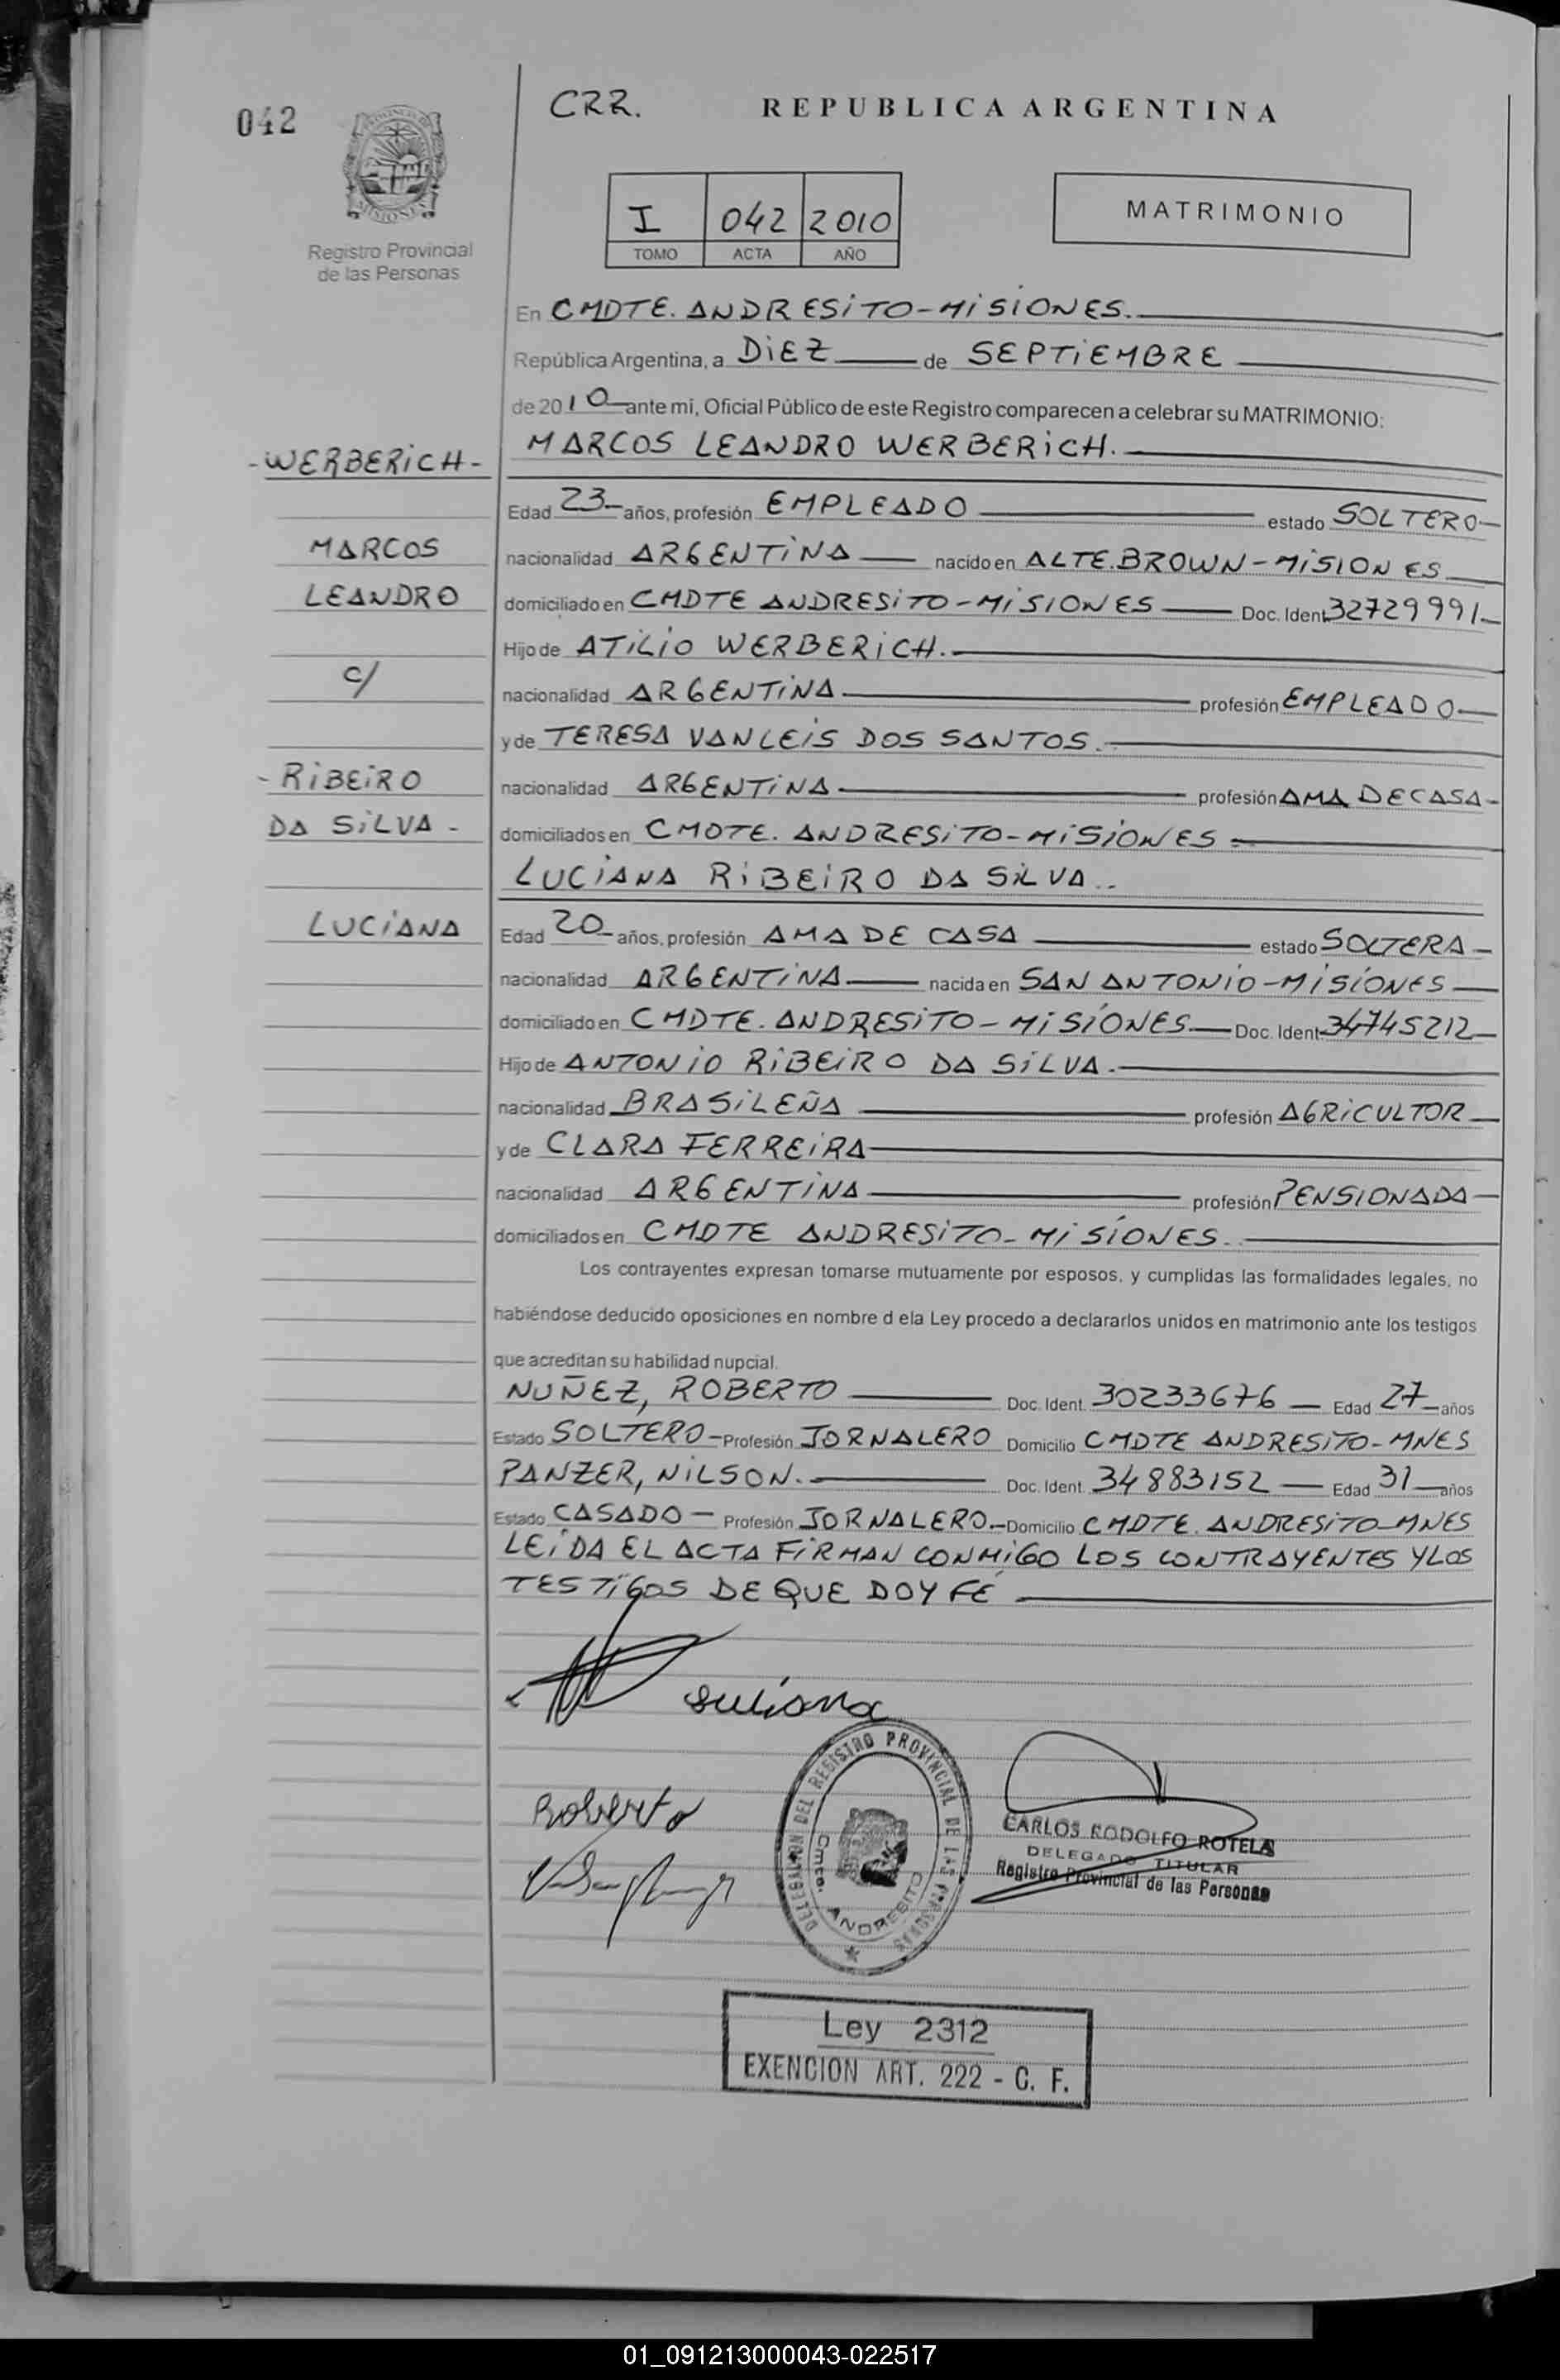 042
MISIONES
Registro Provincial
de las Personas
CRR.
REPUBLICA ARGENTINA
I 042 2010
TOMO ACTA AÑO
MATRIMONIO
En CMDTE. ANDRESITO-MISIONES.
República Argentina, a DIEZ de SEPTIEMBRE
de 2010 ante mí, Oficial Público de este Registro comparecen a celebrar su MATRIMONIO:
-WERBERICH-
MARCOS LEANDRO WERBERICH.
Edad 23- años, profesión EMPLEADO estado SOLTERO-
MARCOS
nacionalidad ARGENTINA nacido en ALTE.BROWN-MISIONES
LEANDRO
domiciliado en CMDTE ANDRESITO-MISIONES Doc. Ident 32729991-
Hijo de ATILIO WERBERICH.
C/
nacionalidad ARGENTINA profesión EMPLEADO
y de TERESA VANLEIS DOS SANTOS.
-RIBEIRO
nacionalidad ARGENTINA profesión AMA DE CASA-
DA SILVA-
domiciliados en CMDTE. ANDRESITO-MISIONES
LUCIANA RIBEIRO DA SILVA..
LUCIANA
Edad 20- años, profesión AMA DE CASA estado SOLTERA-
nacionalidad ARGENTINA nacida en SAN ANTONIO-MISIONES
domiciliado en CMDTE. ANDRESITO-MISIONES Doc. Ident 34745212
Hijo de ANTONIO RIBEIRO DA SILVA.
nacionalidad BRASILEÑA profesión AGRICULTOR
y de CLARA FERREIRA
nacionalidad ARGENTINA profesión PENSIONADA
domiciliados en CMDTE ANDRESITO-MISIONES.
Los contrayentes expresan tomarse mutuamente por esposos, y cumplidas las formalidades legales, no
habiéndose deducido oposiciones en nombre d ela Ley procedo a declararlos unidos en matrimonio ante los testigos
que acreditan su habilidad nupcial.
NUÑEZ, ROBERTO Doc. Ident. 30233676 Edad 27 años
Estado SOLTERO- Profesión JORNALERO Domicilio CMDTE ANDRESITO-MNES
PANZER, NILSON. Doc. Ident. 34883152 Edad 31 años
Estado CASADO- Profesión JORNALERO.- Domicilio CMDTE. ANDRESITO-MNES
LEIDA EL ACTA FIRMAN CONMIGO LOS CONTRAYENTES Y LOS
TESTIGOS DE QUE DOY FE
Luciana
Roberto
DELEGACION DEL REGISTRO PROVINCIAL DE LAS PERSONAS
Cmte. ANDRESITO
CARLOS RODOLFO ROTELA
DELEGADO TITULAR
Registro Provincial de las Personas
Ley 2312
EXENCION ART. 222 - C. F.
01_091213000043-022517